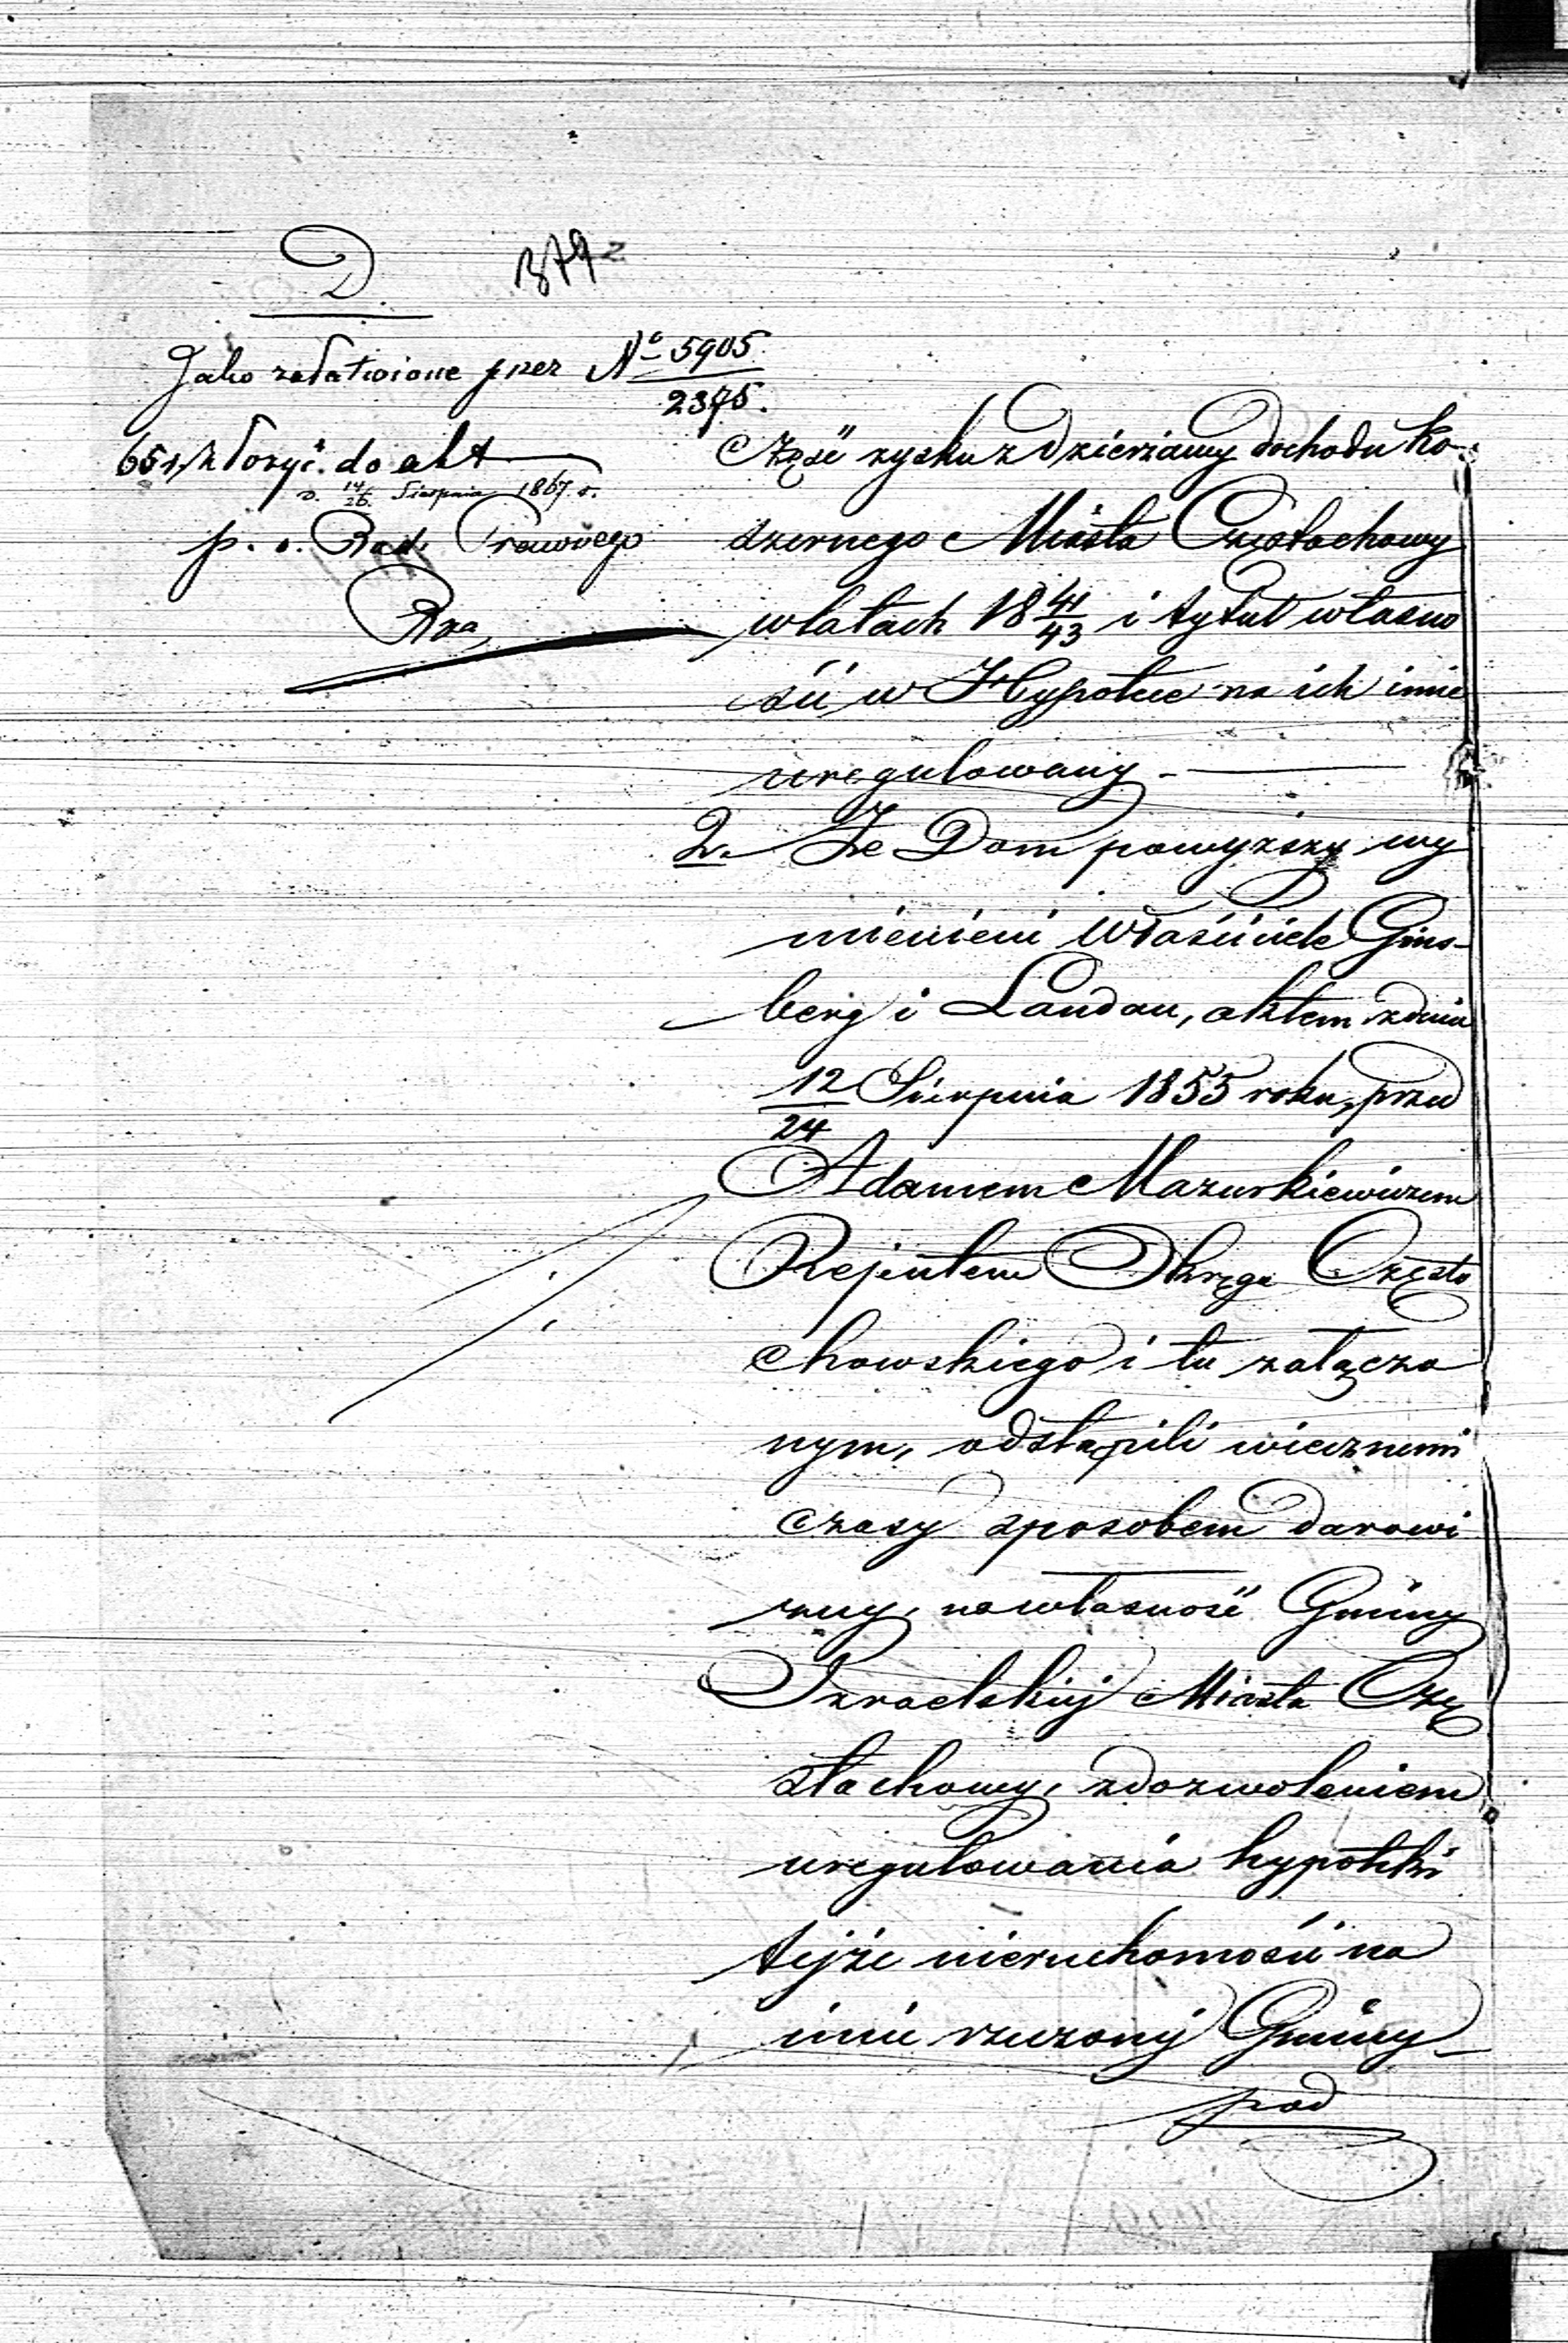 D.
Jako załatwione przez № 5905
2375.
651, złożyć do akt
d. 14/26 Sierpnia 1867 r.
p. o. Rad. Prawnego
część zysku z dzierżawy dochodu ko-
szernego Miasta Częstochowy
w latach 18 41/43 i tytuł własno
ści w Hypotece na ich imie
uregulowany. —
2. Że Dom powyższy wy
mienieni właściciele Gins-
berg i Landau, aktem z dnia
12/24 Sierpnia 1855 roku, przed
Adamem Mazurkiewiczem
Rejentem Okręgu Często
chowskiego i tu załączo
nym, odstąpili wiecznemi
czasy sposobem darowi
zny, na własność Gminy
Izraelskiej Miasta Czę
stochowy, z dozwoleniem
uregulowania hypoteki
tejże nieruchomości na
imie rzeczonej Gminy
pod